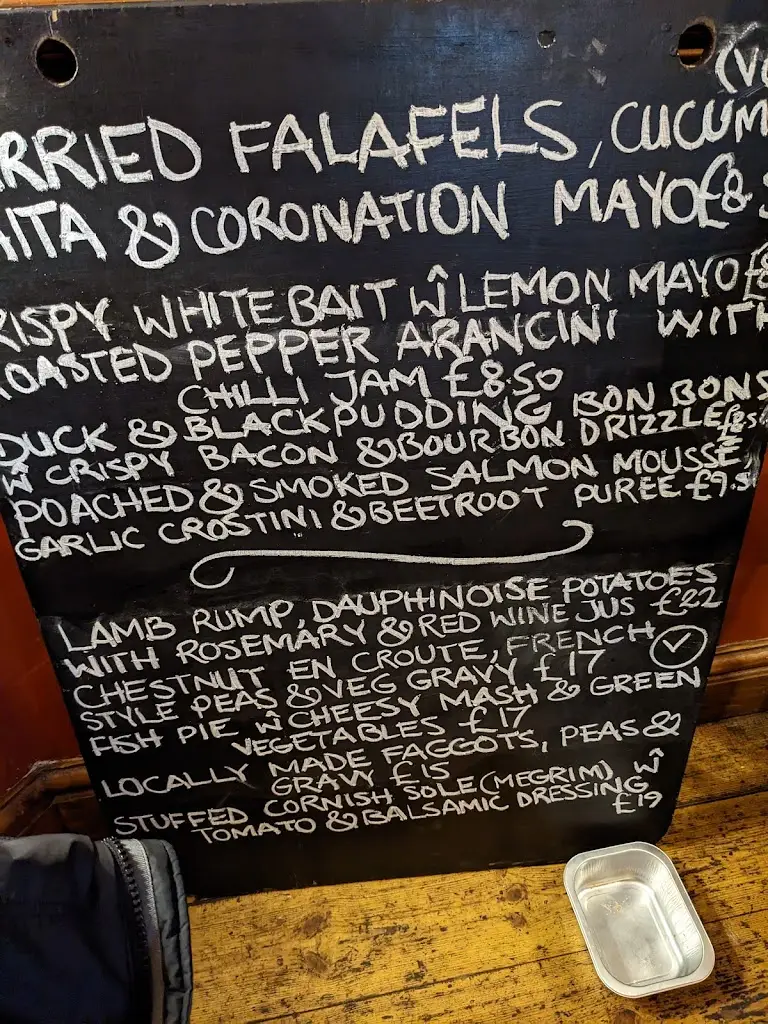 (V
RRIED FALAFELS, CUCUM
AITA & CORONATION MAYO £8
RISPY WHITEBAIT Ŵ LEMON MAYO £8
OASTED PEPPER ARANCINI WITH
CHILLI JAM £8.50
DUCK & BLACK PUDDING BON BONS
Ŵ CRISPY BACON & BOURBON DRIZZLE £8.5
POACHED & SMOKED SALMON MOUSSE,
GARLIC CROSTINI & BEETROOT PUREE £9.5
LAMB RUMP, DAUPHINOISE POTATOES
WITH ROSEMARY & RED WINE JUS £22
CHESTNUT EN CROUTE, FRENCH ✓
STYLE PEAS & VEG GRAVY £17
FISH PIE Ŵ CHEESY MASH & GREEN
VEGETABLES £17
LOCALLY MADE FAGGOTS, PEAS &
GRAVY £15
STUFFED CORNISH SOLE (MEGRIM) Ŵ
TOMATO & BALSAMIC DRESSING
£19